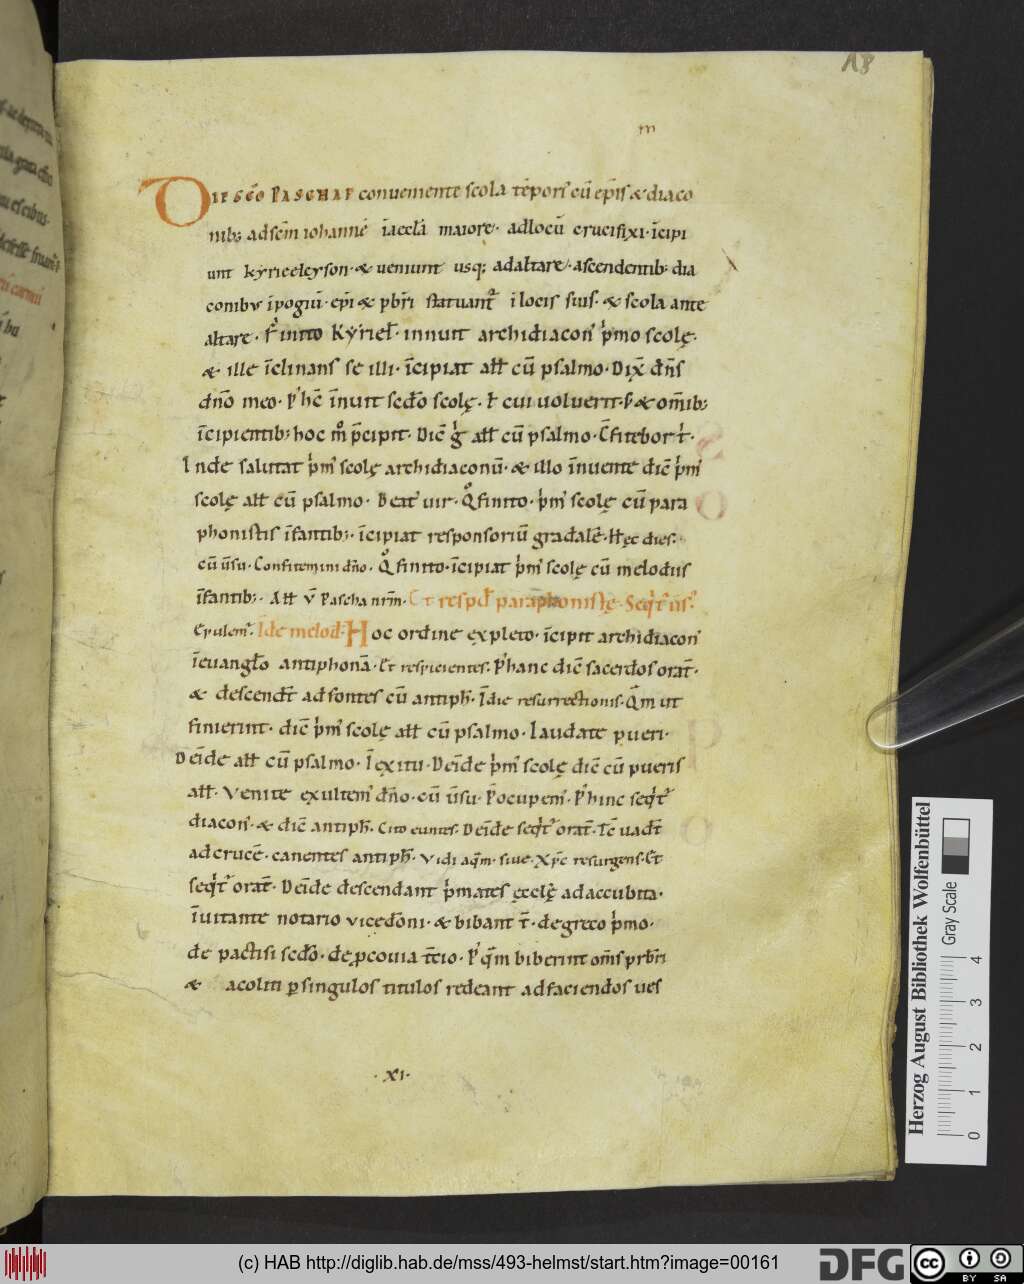 DIE SC̄O PASCHAE conueniente scola tēporí cū ep̄is & diaco
nib; ad sc̄m iohannē iāecl̄a maiore. ad locū crucifixi. īcipi
unt kyrieeleyson. & ueniunt usq; ad altare. ascendentib; dia
conibus īpogiū. ep̄i & pbr̄i statuant͛ ī locis suis. & scola ante
altare. finito Kyriel̄. innuit archidiacon͛ p͛mo scolę.
& ille īclinans se illi. īcipiat all̄ cū psalmo. Dix̄ dn̄s
dn̄o meo. P͛ hc̄ īnuit sec̄do scolę. ł cui uoluerit. & om̄ib;
īcipientib; hoc m̊ p̄cipit. Dic̄ g̍ all̄ cū psalmo. C̄fitebor t̍.
Inde salutat p̍m͛ scolę archidiaconū. & illo īnuente dic̄ p̍m͛
scolę all̄ cū psalmo. Beat͛ uir. Q̊ finito. p̍m͛ scolę cū para
phonistis īfantib;. īcipiat responsoriū gradalē. Hęc dies.
cū ūsu. Confitemini dn̄o. Q̊ finito. īcipiat p̍m͛ scolę cū melodus
īfantib;. All̄ v̄ Pascha nrm̄. Et respd̄ paraphonistę. Seq̍t͛ us͛.
Epulem͛. Īde melod̄. Hoc ordine expleto. īcipit archidiacon͛
īeuangl̄o antiphonā. Et respicientes. P͛ hanc dic̄ sacerdos orat̄.
& descendt̄ ad fontes cū antiph̄. Īdie resurrectionis. Q̄m ut
finierint. dic̄ p̍m͛ scolę all̄ cū psalmo. Laudate pueri.
Deīde all̄ cū psalmo. Ī exitu. Deīde p̍m͛ scolę dic̄ cū pueris
all̄. Venite exultem͛ dn̄o. cū ūsu. P̄ocupem͛. P͛ hinc seq̍t͛
diacon͛. & dic̄ antiph̄. Cito euntes. Deīde seq̍t͛ orat̄. Tc̄ uadt̄
ad crucē. canentes antiph̄. Vidi aq̄m. siue. Xp̄c resurgens. Et
seq̍t͛ orat̄. Deīde descendant p̍mates ęcclę ad accubita.
īuitante notario uicedōni. & bibant t̄. de greco p̍mo.
de pactisi sec̄do. de pcouia t̄cio. P͛ q̄m biberint om̄s prbr̄i
& acoliti ꝑ singulos titulos redeant ad faciendos ues
.xi.
Herzog August Bibliothek Wolfenbüttel
Gray Scale
0 1 2 3 4
(c) HAB http://diglib.hab.de/mss/493-helmst/start.htm?image=00161
DFG
CC BY SA